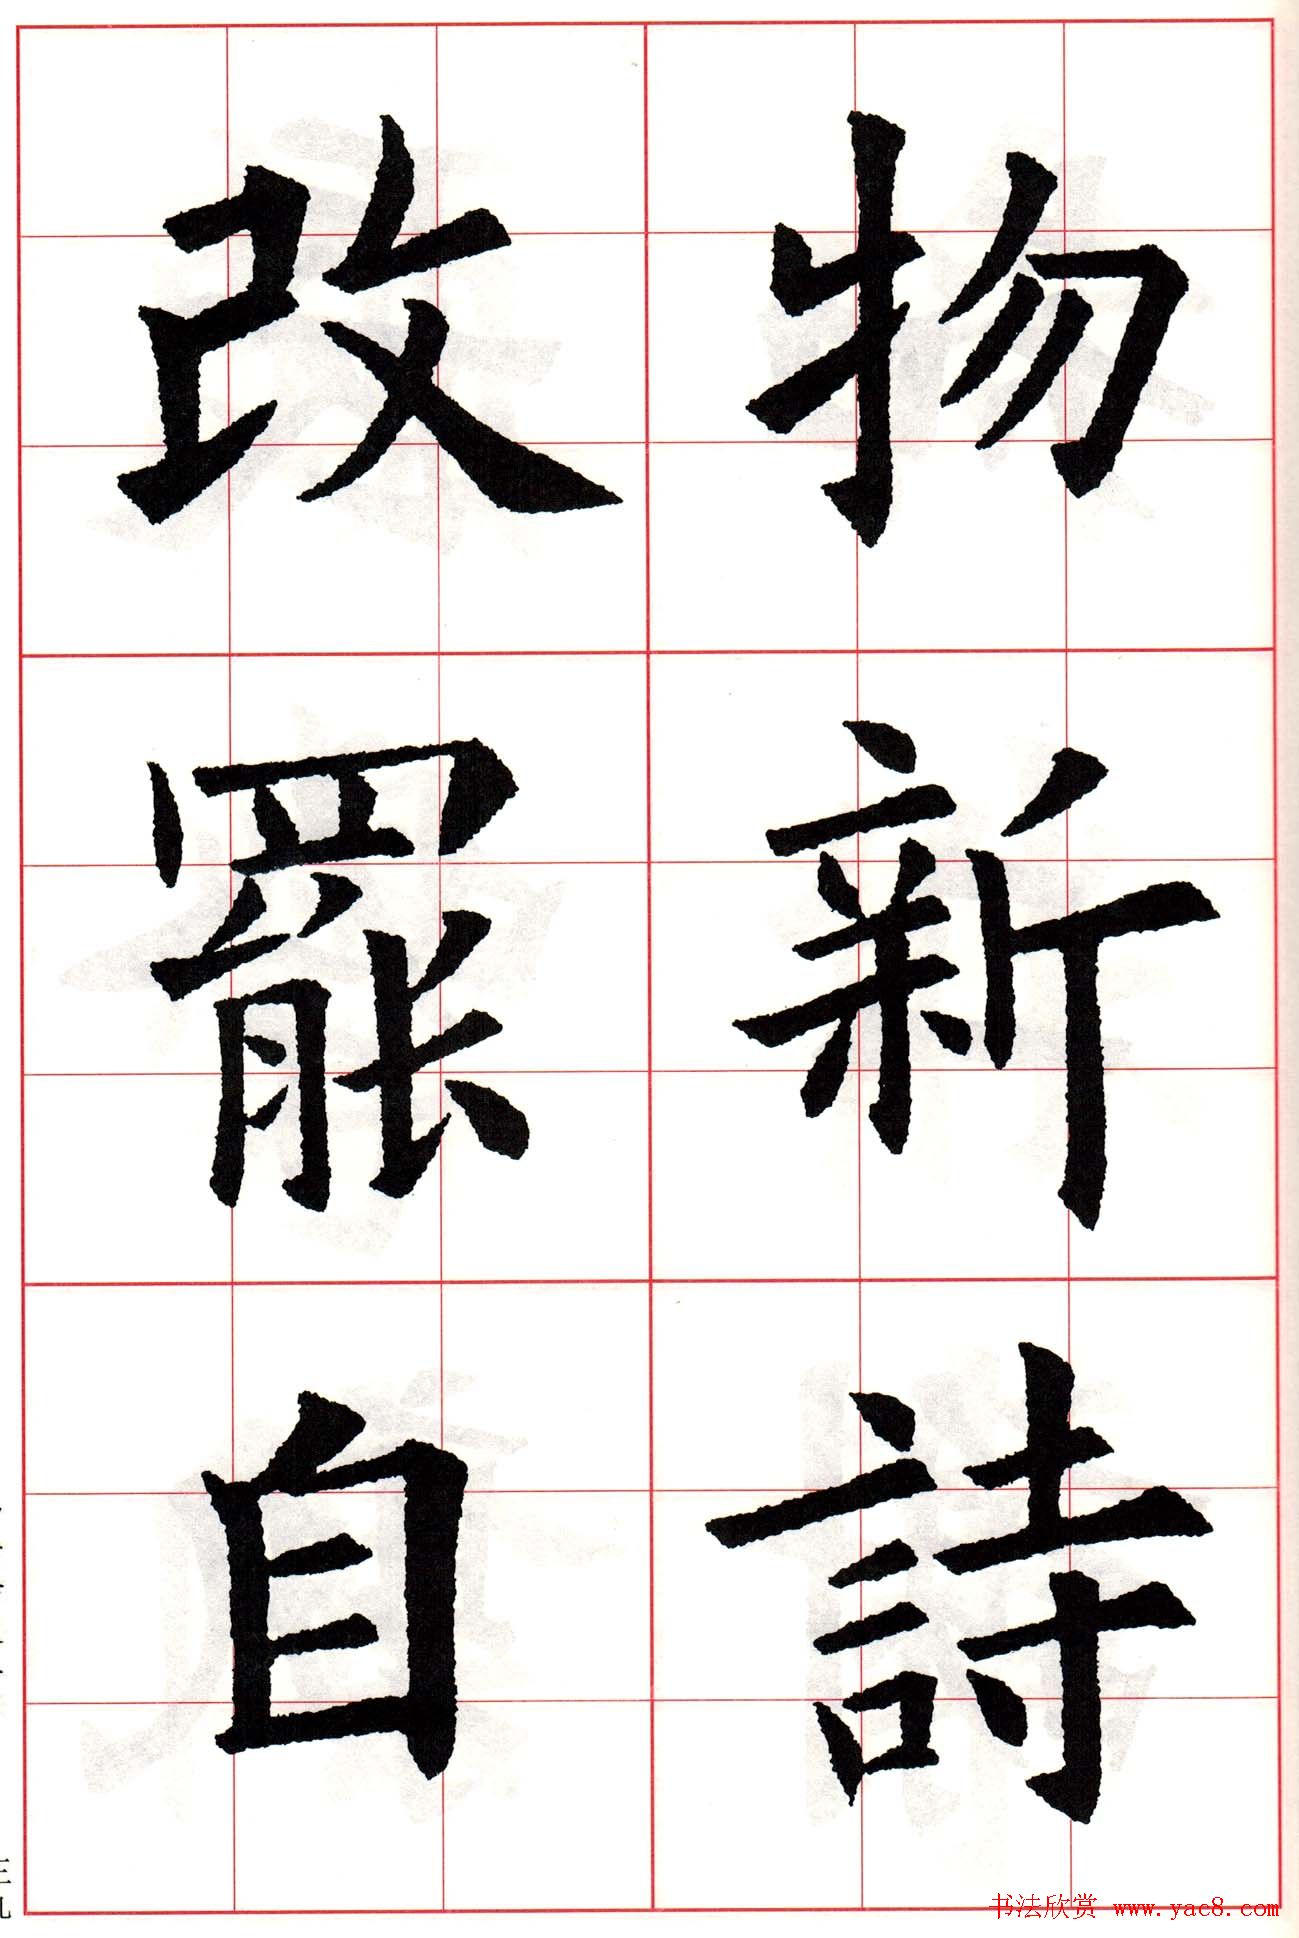 物新詩
改罷自
书法欣赏 www.yac8.com